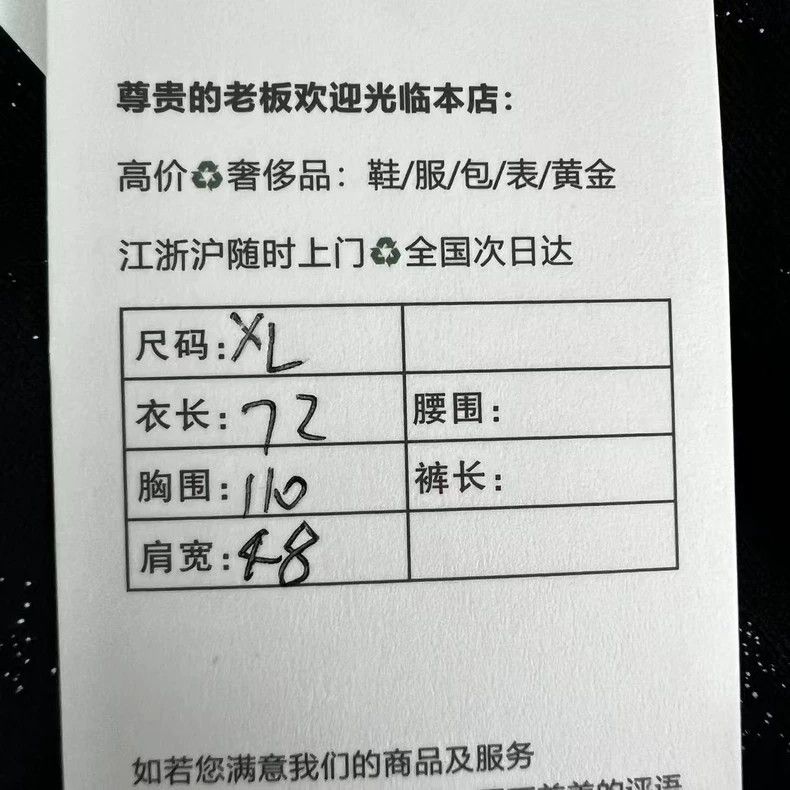 尊贵的老板欢迎光临本店：
高价♻奢侈品：鞋/服/包/表/黄金
江浙沪随时上门♻全国次日达
尺码：XL
衣长：72 腰围：
胸围：110 裤长：
肩宽：48
如若您满意我们的商品及服务
善的评语